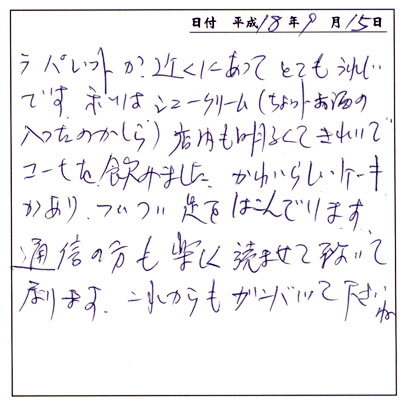 日付 平成18年9月15日
ラパレットが近くにあってとてもうれしい
です。私はシュークリーム(ちょっとお酒の
入ったのかしら)店内も明るくてきれいで
コーヒーを飲みました。かわいらしいケーキ
があり、ついつい足をはこんでおります。
通信の方も楽しく読ませて頂いて
居ります。これからもガンバッて下さいね